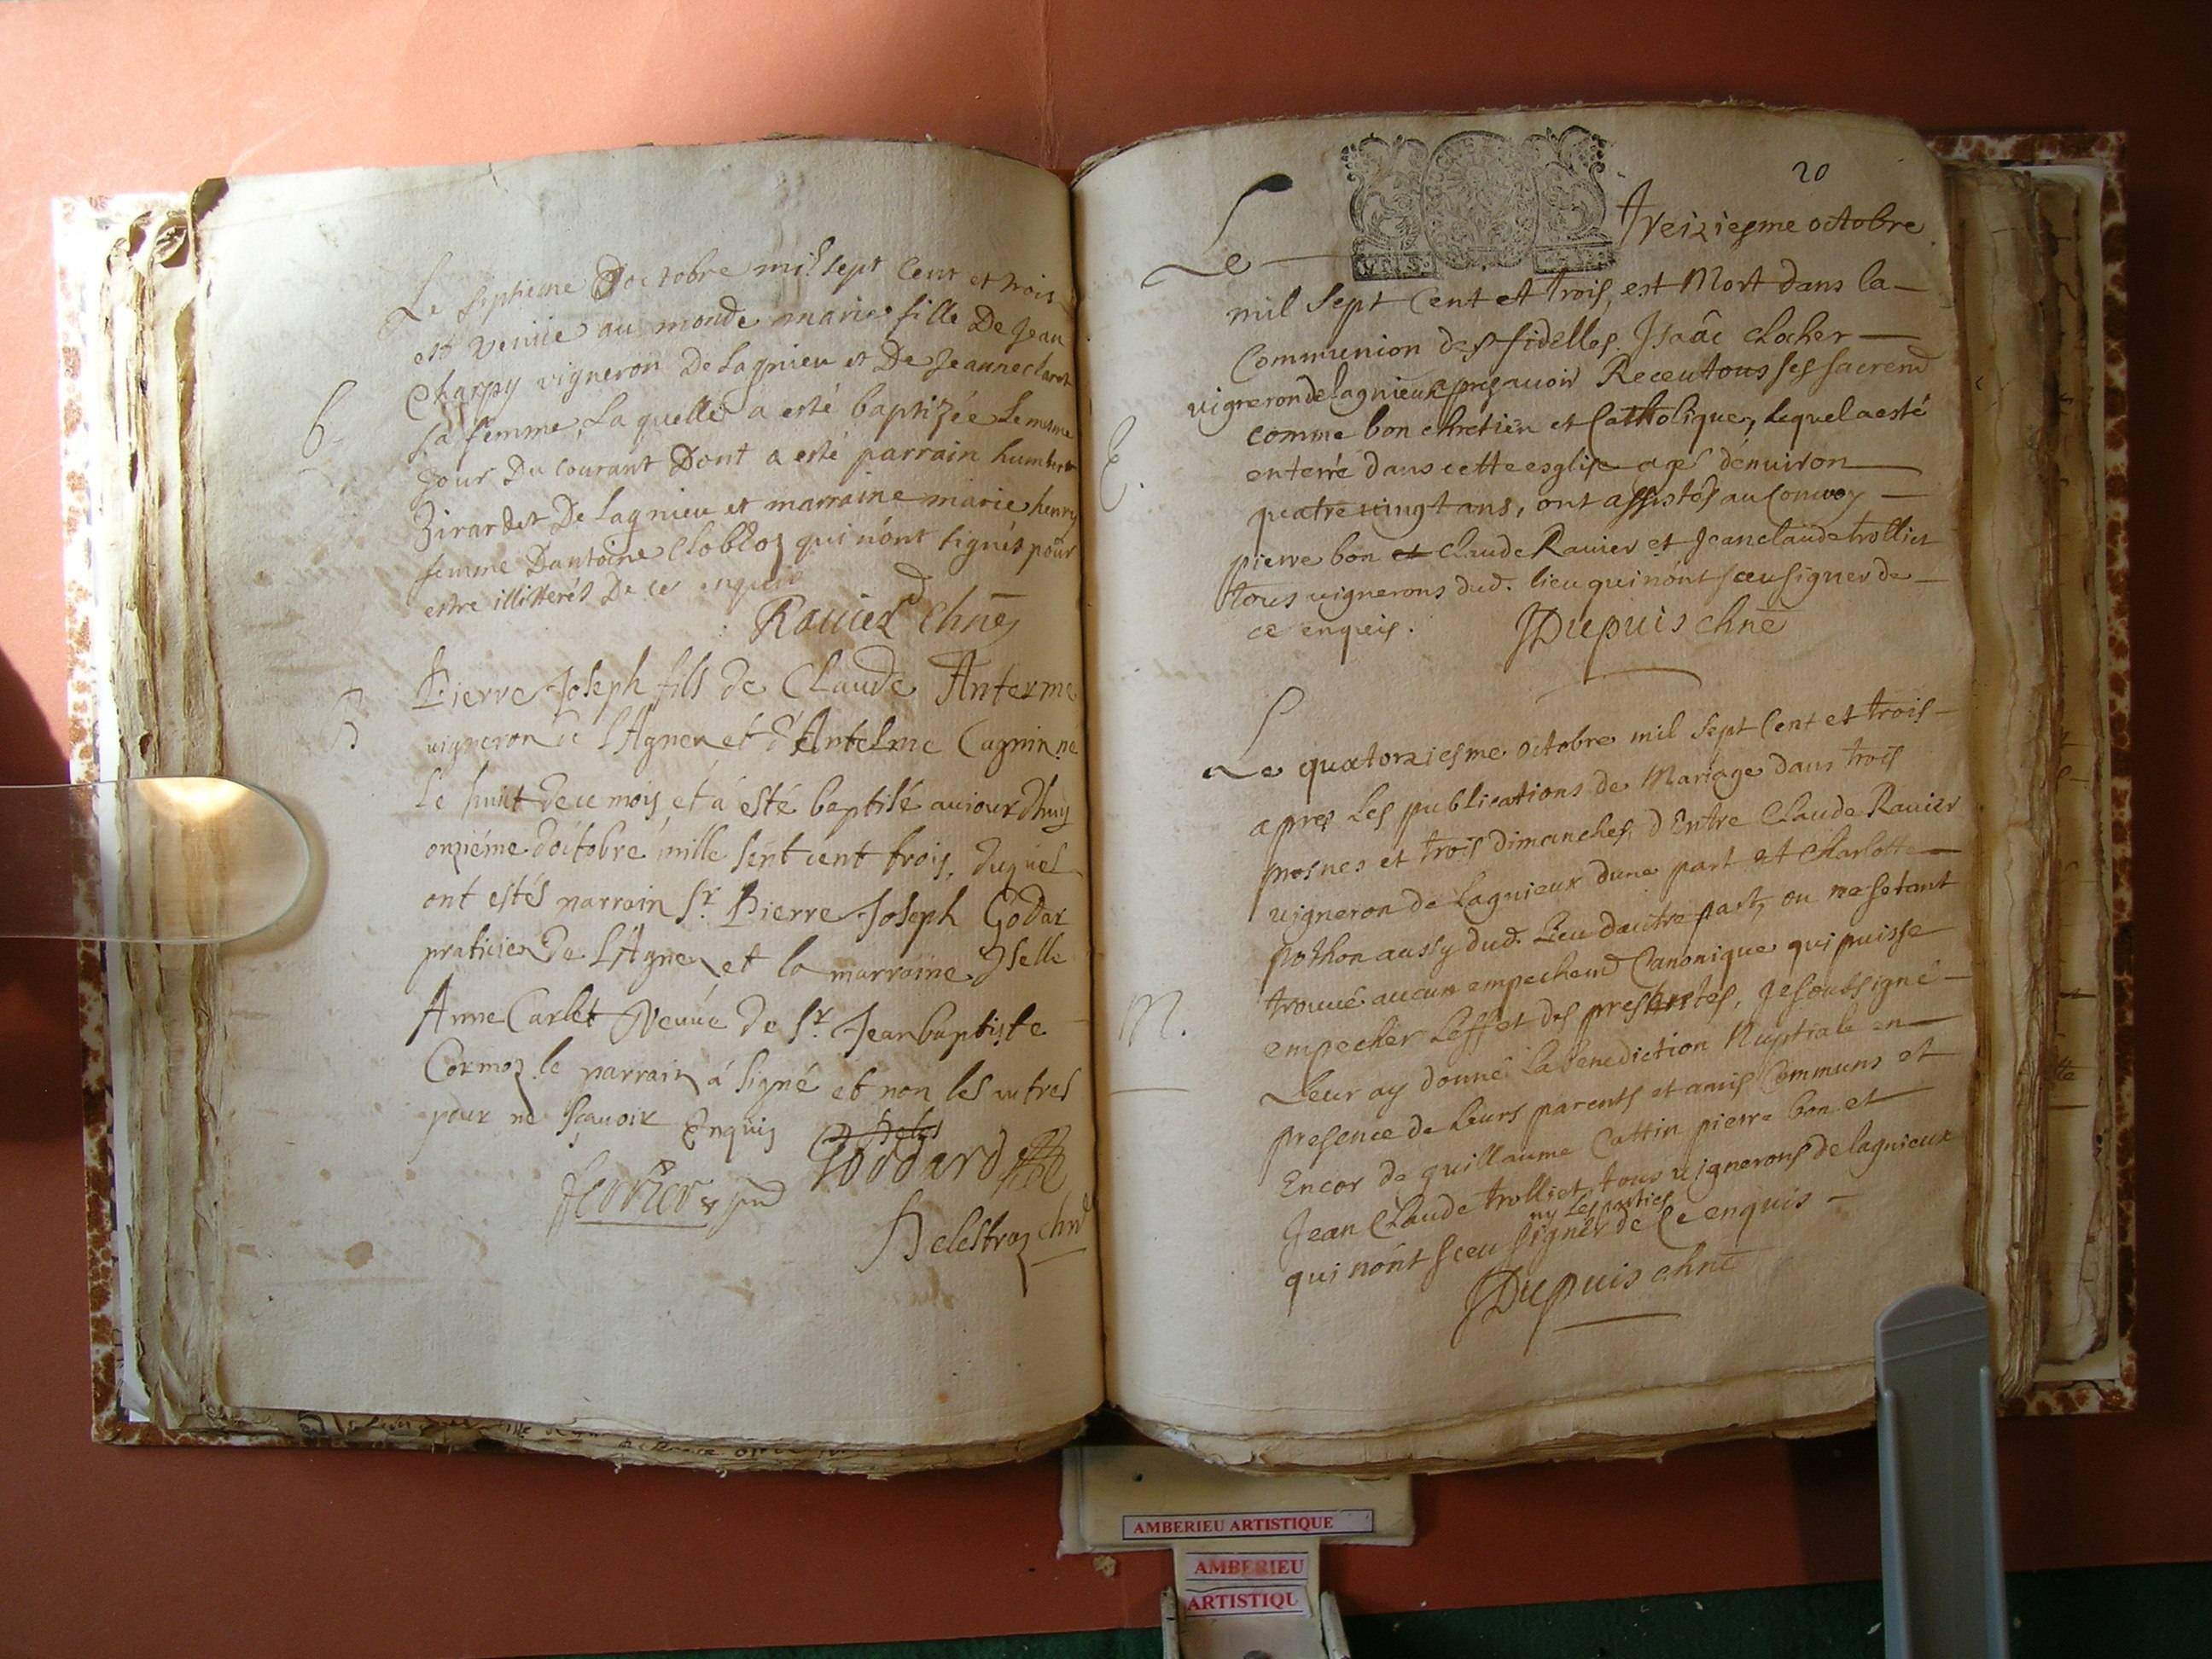 Le septieme Doctobre mil sept Cent et trois
est venüe au monde marie fille De Jean
Charpy vigneron De Lagnieu et De Jeanne claret
B.
sa femme, La quelle a esté baptizée Le mesme
Jour Du courant Dont a esté parrain humbert
Girardet De Lagnieu et marraine marie henry
femme Dantoine qui nónt signés pour
estre illitterés De ce enquis
Ravier chne
B
Pierre Joseph fils de Claude Anterme
vigneron de lAgneu et d'Antelme Cagnin ne
le huit de ce mois et à esté baptisé aujourdhuy
onziéme doctobre mille sept cent trois, duquel
ont estés parrain Sr. Pierre Joseph Godar
praticien de lAgneu et la marraine Dselle
Anne Carlet Veuve de Sr. Jean baptiste
Cormoz le parrain á signé et non les autres
pour ne sçavoir Enquis
Goddard
Ferrier
Delestraz chne
20
Le treiziesme octobre
mil sept Cent et trois, est Mort dans la
Communion des fidelles Isaâc clocher
vigneron de lagnieux apres avoir Receu tous ses sacremd
comme bon chretien et Catholique, Lequel a esté
E.
enterré dans cette esglise agé dénviron
quatre vingt ans, ont assistés au Convoy
pierre bon et claude Ravier et Jean claude trolliet
tous vignerons dud. lieu qui nónt sceu signer de
ce enqueis.
JDupuis chne
Le quatorziesme octobre mil sept Cent et trois
apres Les publications de Mariage dans trois
prosnes et trois dimanches, d Entre Claude Ravier
vigneron de Lagnieux dune part et Charlotte
pothon aussy dud. Lieu dautre part, ou ne setant
trouvé aucun empechemd Canonique qui puisse
M.
empecher Leffet des presentes, Je soubsigné
Leur ay donné La benediction Nuptiale en
presence de Leurs parents et amis Communs et
Encor de guillaume Cattin pierre bon et
Jean Claude trolliet, tous vignerons de lagnieux
ny Les parties
qui nónt sceu signer de Ce enquis
JDupuis chne
AMBERIEU ARTISTIQUE
AMBERIEU
ARTISTIQU